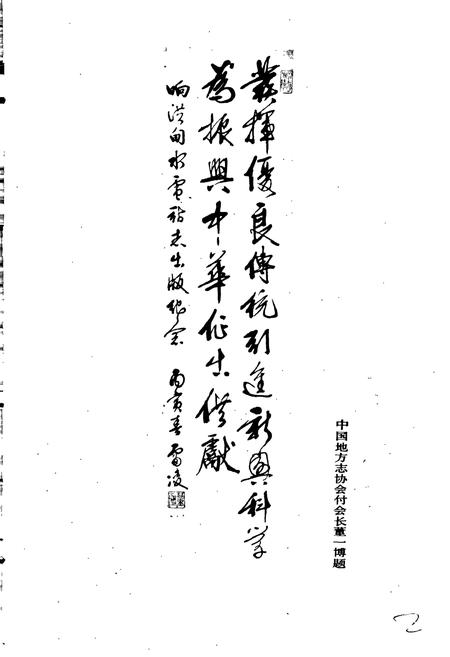 中国地方志协会付会长董一博题
發揮優良傳統引進新興科学
為振興中華作出供獻
响洪甸水電站志出版紀念
丙寅春 雷凌